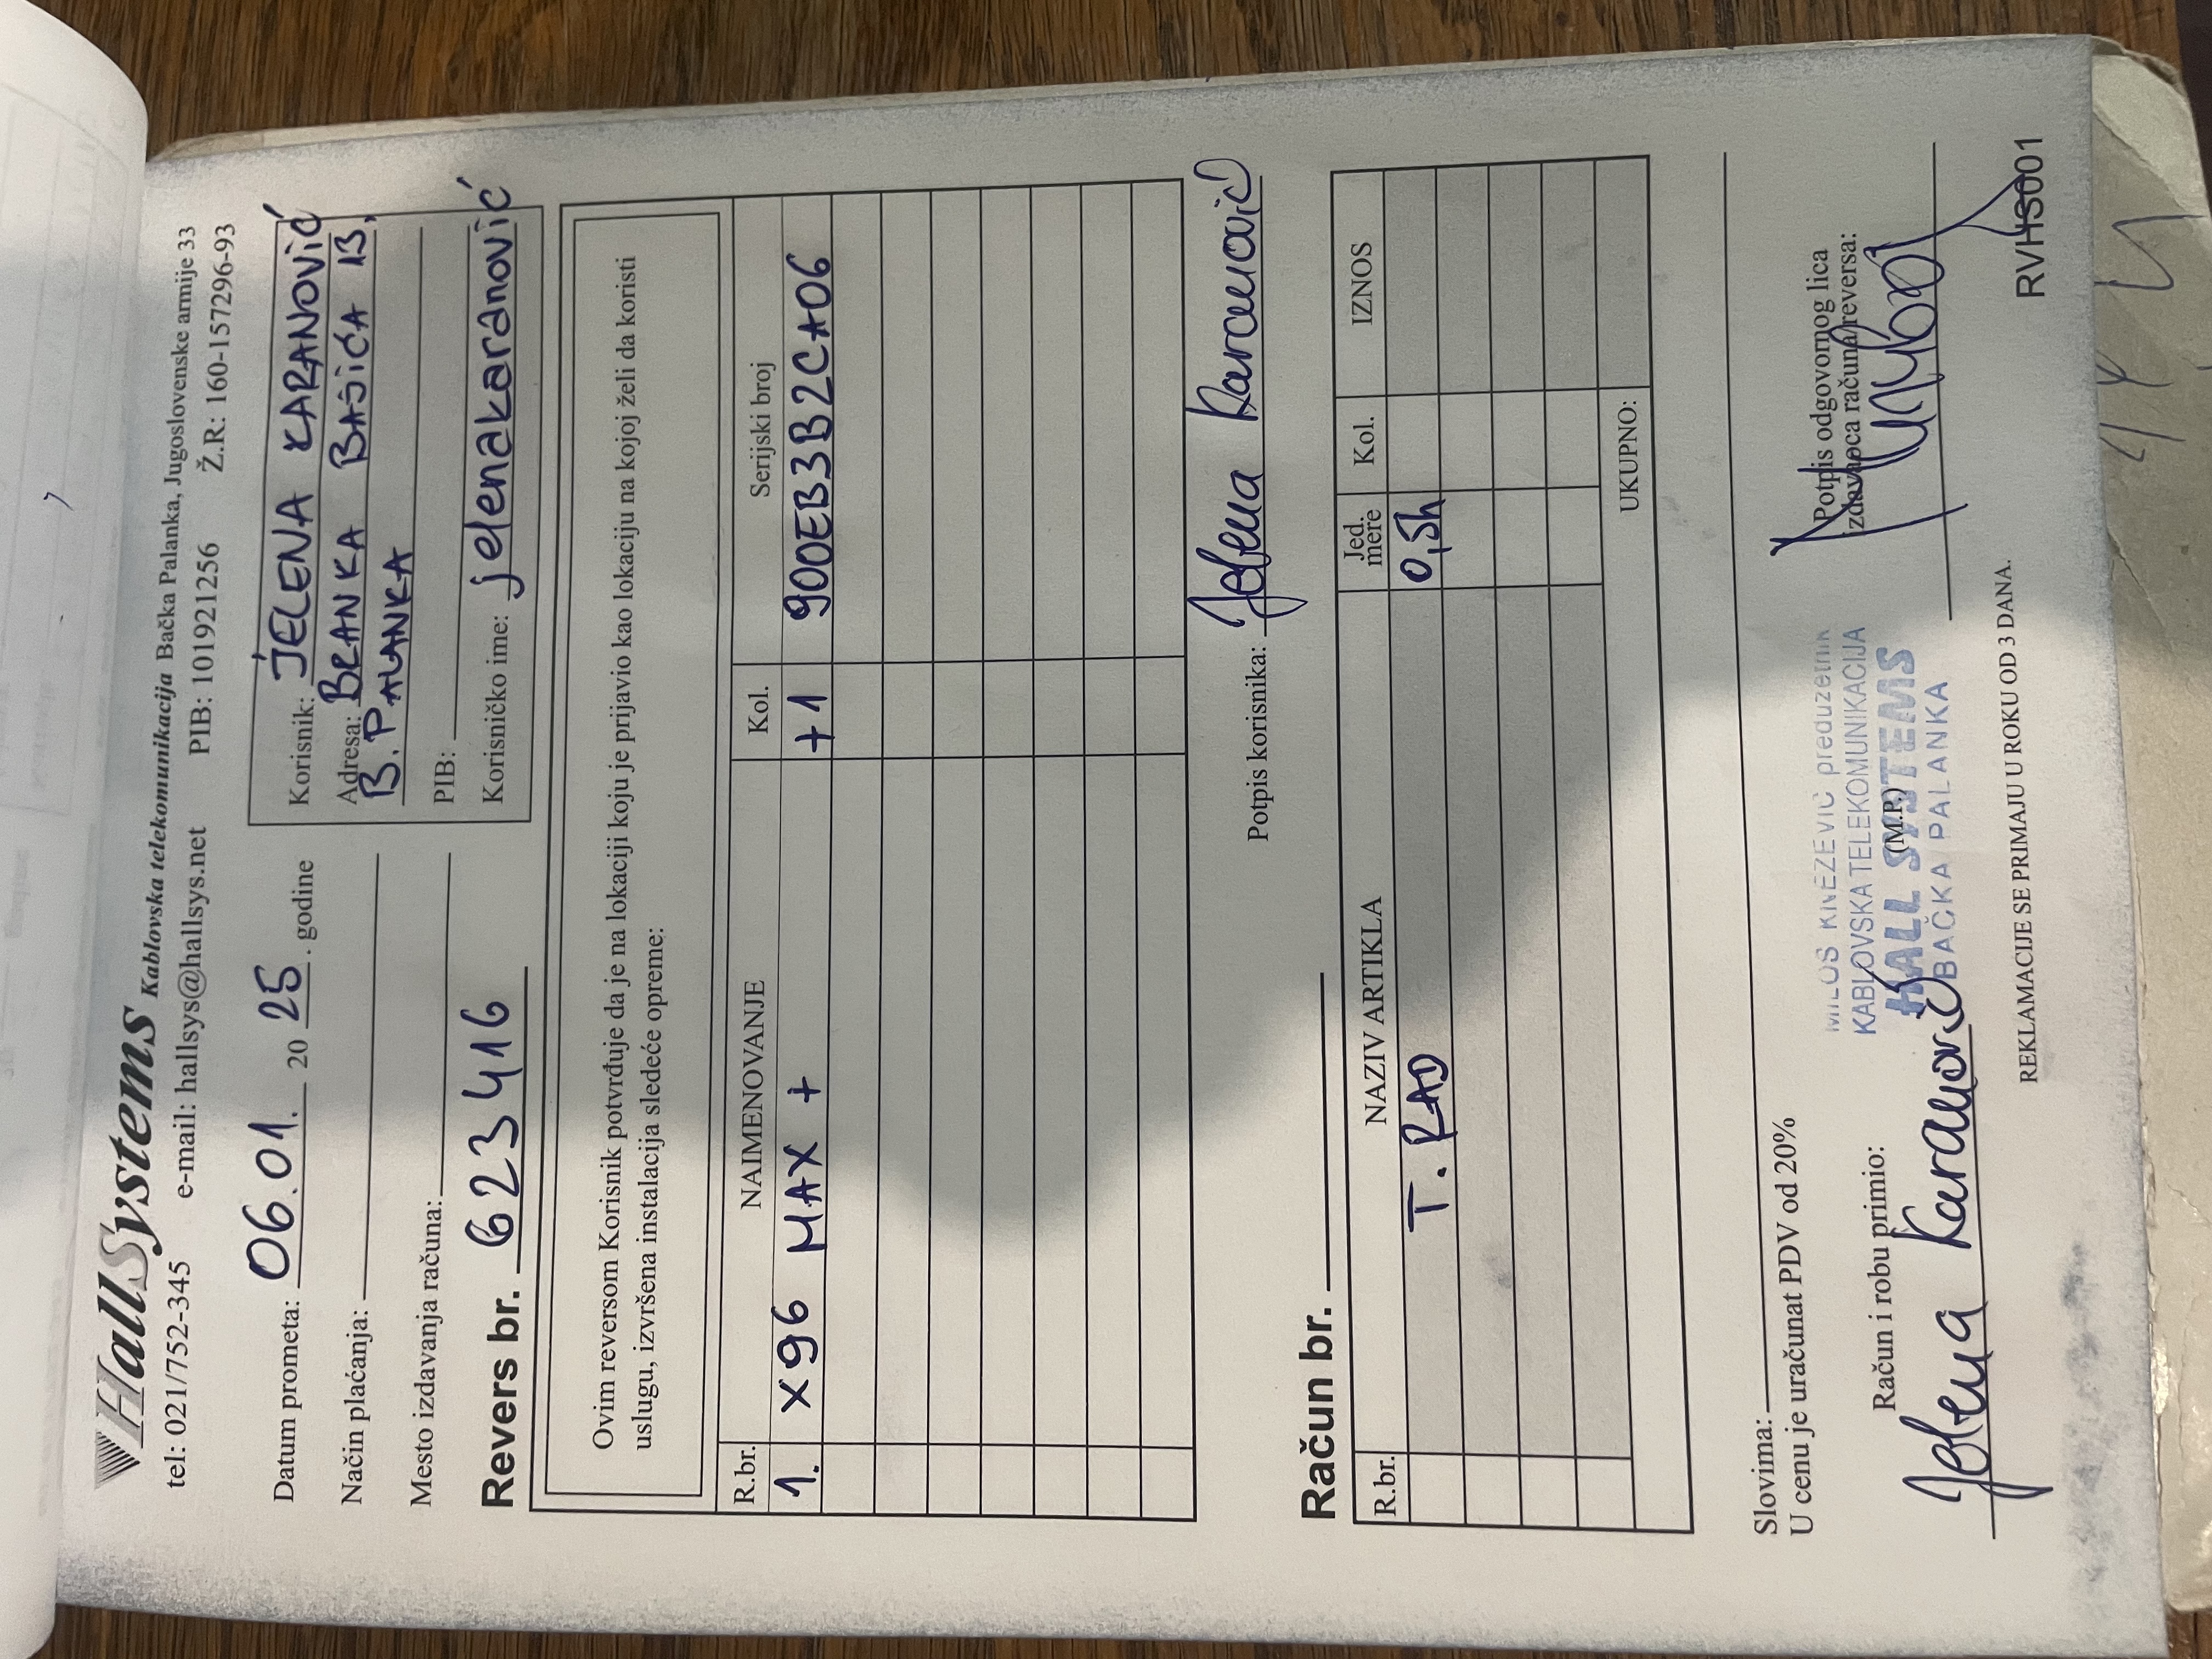 HallSystems Kablovska telekomunikacija Bačka Palanka, Jugoslovenske armije 33
tel: 021/752-345 e-mail: hallsys@hallsys.net PIB: 101921256 Ž.R.: 160-157296-93
Datum prometa: 06.01. 20 25. godine
Način plaćanja:
Mesto izdavanja računa:
Korisnik: JELENA KARANOVIĆ
Adresa: BRANKA BAJIĆA 13,
B. PALANKA
PIB:
Korisničko ime: jelenakaranović
Revers br. 623416
Ovim reversom Korisnik potvrđuje da je na lokaciji koju je prijavio kao lokaciju na kojoj želi da koristi
uslugu, izvršena instalacija sledeće opreme:
R.br. NAIMENOVANJE Kol. Serijski broj
1. X96 MAX + +1 900EB3B2CA06
Potpis korisnika: Jelena Karanović
Račun br.
R.br. NAZIV ARTIKLA Jed. mere Kol. IZNOS
T. RAD 0,5h
UKUPNO:
Slovima:
U cenu je uračunat PDV od 20%
Račun i robu primio:
Jelena Karanović
MILOŠ KNEŽEVIĆ preduzetnik
KABLOVSKA TELEKOMUNIKACIJA
HALL SYSTEMS
(M.P.)
BAČKA PALANKA
Potpis odgovornog lica
izdavaoca računa/reversa:
REKLAMACIJE SE PRIMAJU U ROKU OD 3 DANA.
RVHS001